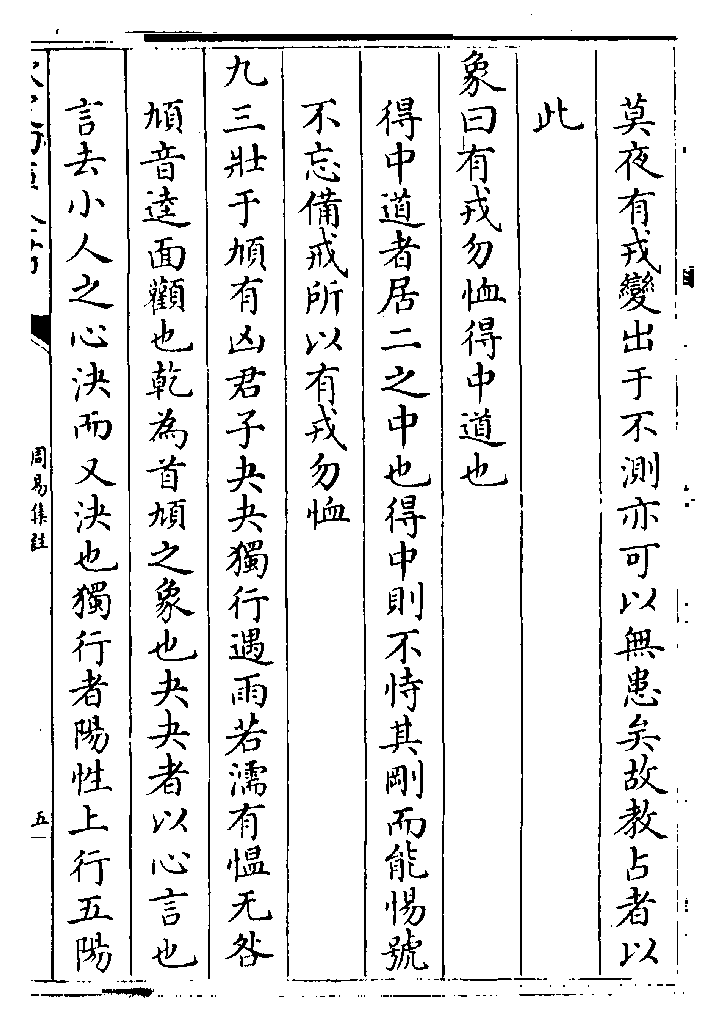 莫夜有戎變出于不測亦可以無患矣故教占者以
此
象曰有戎勿恤得中道也
得中道者居二之中也得中則不恃其剛而能惕號
不忘備戒所以有戎勿恤
九三壯于頄有凶君子夬夬獨行遇雨若濡有慍无咎
頄音逵面顴也乾為首頄之象也夬夬者以心言也
言去小人之心決而又決也獨行者陽性上行五陽
周易集註
五